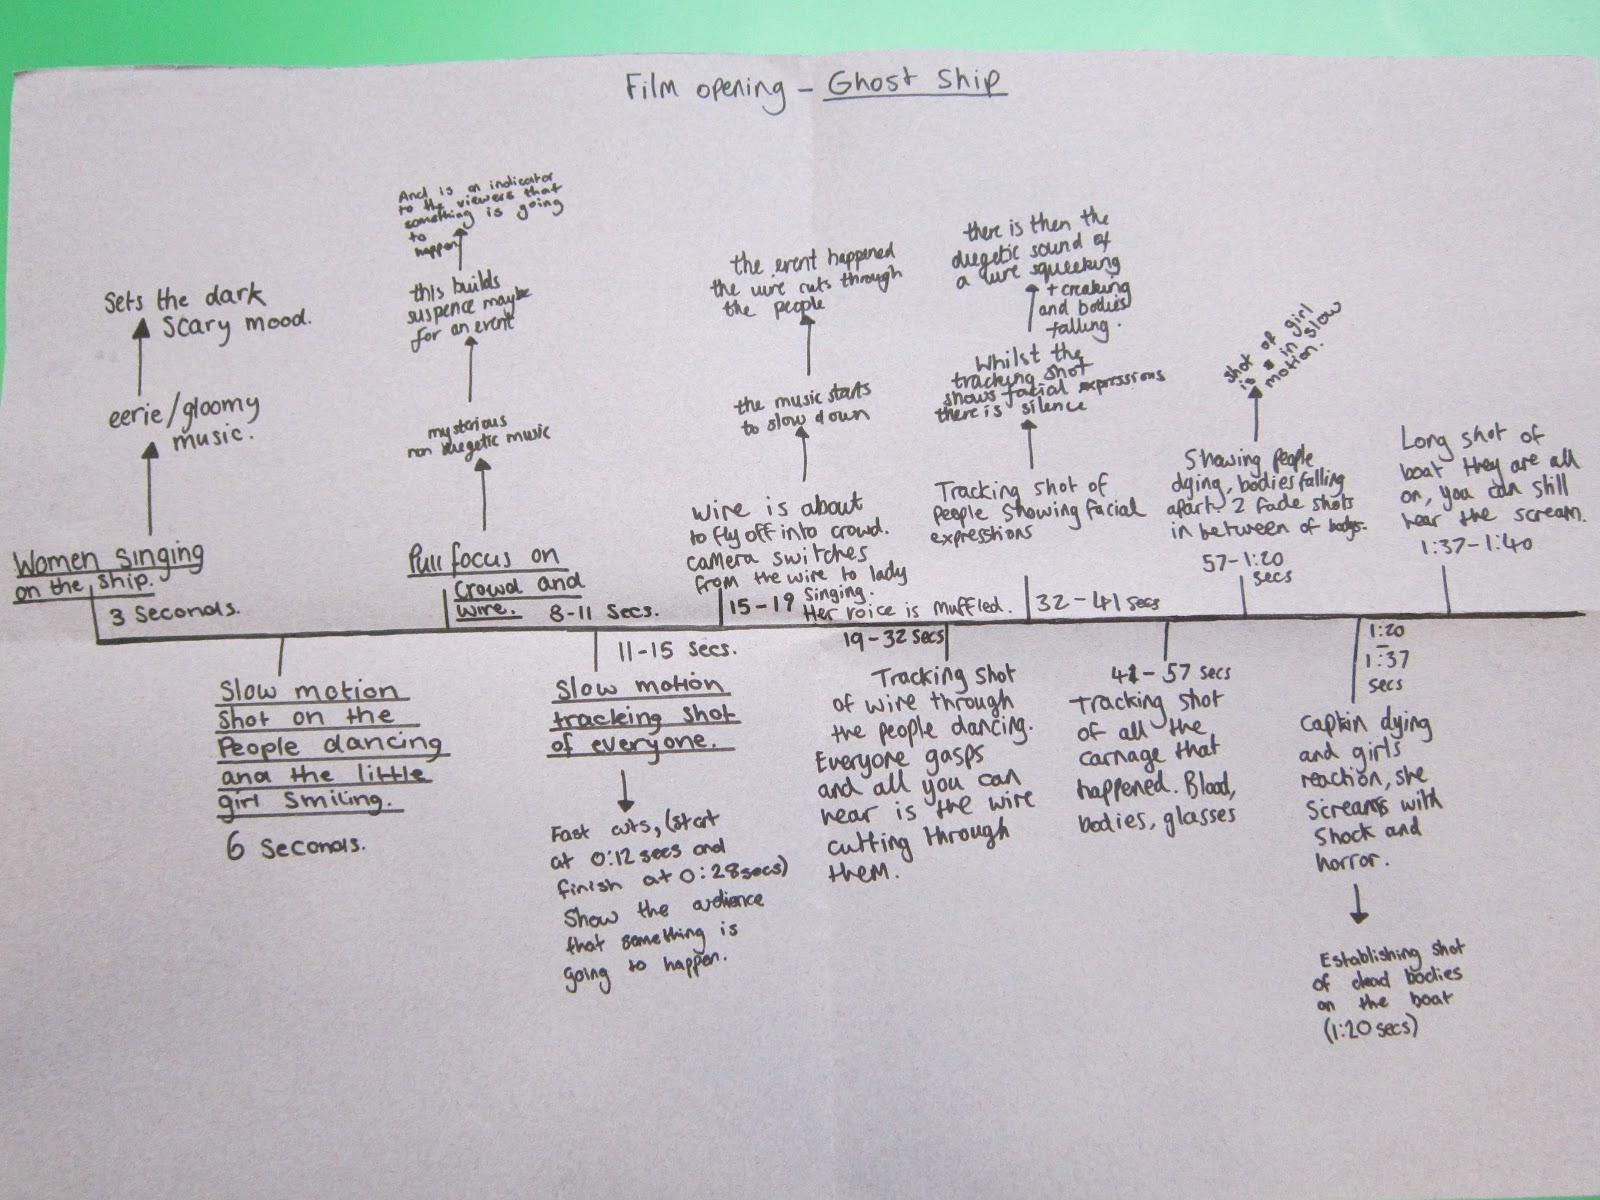 Film opening - Ghost Ship
Sets the dark
scary mood.
eerie/gloomy
music.
Women singing
on the ship.
3 seconds.
Slow motion
shot on the
People dancing
and the little
girl smiling.
6 seconds.
And is an indicator
to the viewers that
something is going
to
happen
this builds
suspence maybe
for an event
mysterious
non diegetic music
Pull focus on
crowd and
wire.
8-11 secs.
11-15 secs.
Slow motion
tracking shot
of everyone.
Fast cuts, (start
at 0:12 secs and
finish at 0:28secs)
Show the audience
that something is
going to happen.
the event happened
the wire cuts through
the people
the music starts
to slow down
Wire is about
to fly off into crowd.
camera switches
from the wire to lady
singing.
Her voice is muffled.
15-19
19-32 secs
Tracking shot
of wire through
the people dancing.
Everyone gasps
and all you can
hear is the wire
cutting through
them.
there is then the
diegetic sound of
a wire squeeking
+ creaking
and bodies
falling.
Whilst the
tracking shot
shows facial expressions
there is silence
Tracking shot of
people showing facial
expressions
32-41 secs
41-57 secs
Tracking shot
of all the
carnage that
happened. Blood,
bodies, glasses
shot of girl
is in slow
motion.
Showing people
dying, bodies falling
apart. 2 fade shots
in between of bodys.
57-1:20
secs
1:20
-
1:37
secs
Captin dying
and girls
reaction, she
screams with
shock and
horror.
Establishing shot
of dead bodies
on the boat
(1:20 secs)
Long shot of
boat they are all
on, you can still
hear the scream.
1:37-1:40